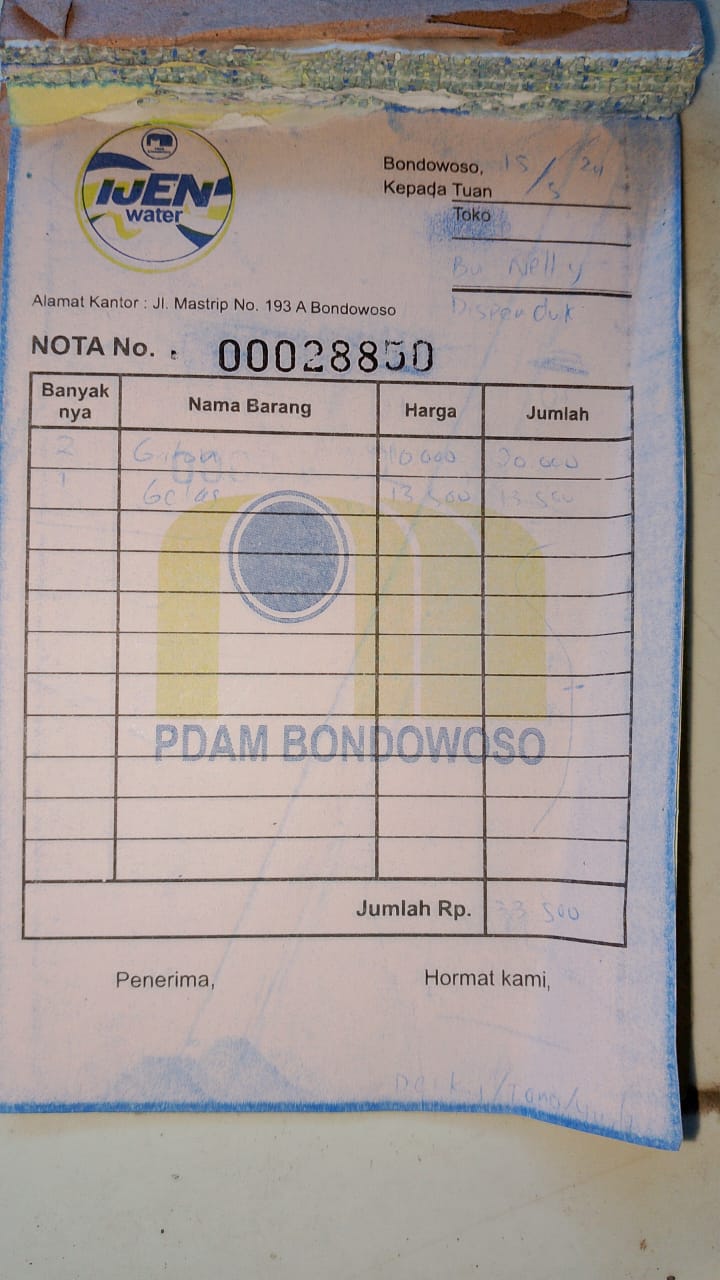 IJEN
water
Bondowoso, 15/5 24
Kepada Tuan
Toko
Bu Nelly
Dispenduk
Alamat Kantor : Jl. Mastrip No. 193 A Bondowoso
NOTA No. : 00028850
Banyak nya Nama Barang Harga Jumlah
2 Galon 10.000 20.000
1 Gelas 13.500 13.500
PDAM BONDOWOSO
Jumlah Rp. 33.500
Penerima, Hormat kami,